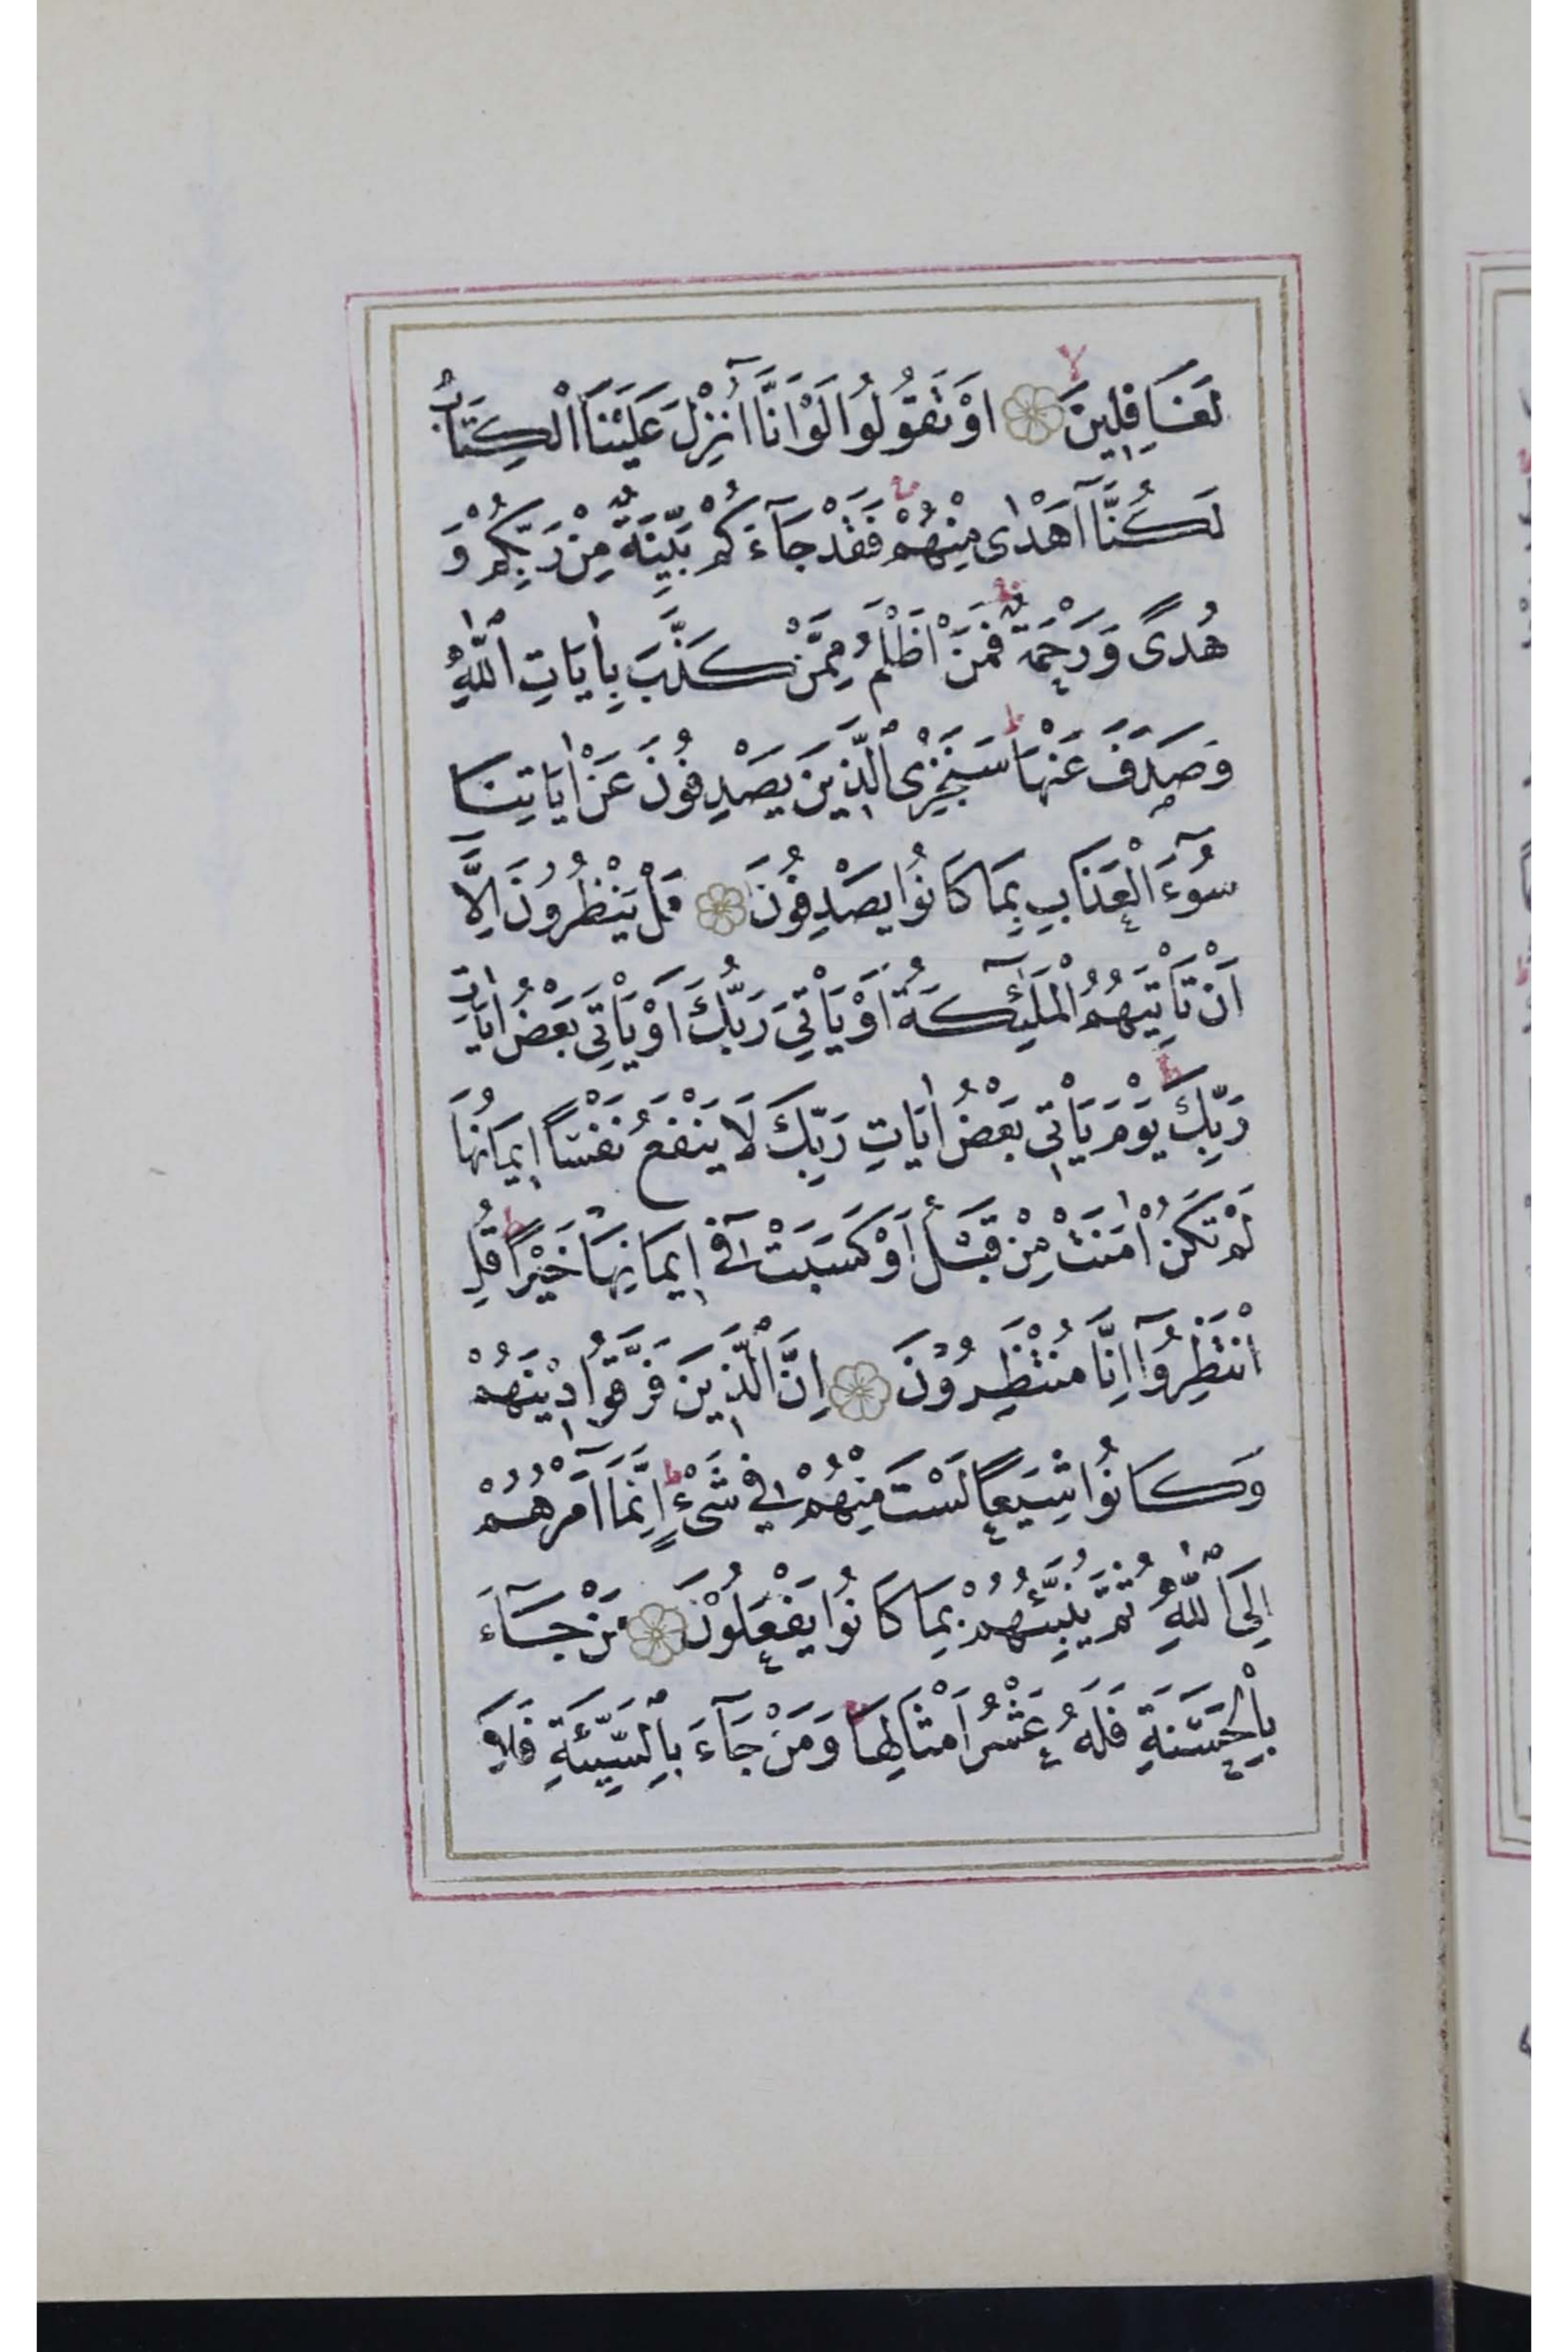 لَغَافِلِينَ اَوْ تَقُولُوا لَوْ اَنَّا اُنْزِلَ عَلَيْنَا الْكِتَابُ
لَكُنَّا اَهْدٰى مِنْهُمْ فَقَدْ جَآءَكُمْ بَيِّنَةٌ مِنْ رَبِّكُمْ وَ
هُدًى وَرَحْمَةٌ فَمَنْ اَظْلَمُ مِمَّنْ كَذَّبَ بِاٰيَاتِ اللّٰهِ
وَصَدَفَ عَنْهَا سَنَجْزِى الَّذِينَ يَصْدِفُونَ عَنْ اٰيَاتِنَا
سُوٓءَ الْعَذَابِ بِمَا كَانُوا يَصْدِفُونَ هَلْ يَنْظُرُونَ اِلَّآ
اَنْ تَاْتِيَهُمُ الْمَلٰٓئِكَةُ اَوْ يَاْتِىَ رَبُّكَ اَوْ يَاْتِىَ بَعْضُ اٰيَاتِ
رَبِّكَ يَوْمَ يَاْتِى بَعْضُ اٰيَاتِ رَبِّكَ لَا يَنْفَعُ نَفْسًا اِيمَانُهَا
لَمْ تَكُنْ اٰمَنَتْ مِنْ قَبْلُ اَوْ كَسَبَتْ فِٓى اِيمَانِهَا خَيْرًا قُلِ
انْتَظِرُوٓا اِنَّا مُنْتَظِرُونَ اِنَّ الَّذِينَ فَرَّقُوا دِينَهُمْ
وَكَانُوا شِيَعًا لَسْتَ مِنْهُمْ فِى شَىْءٍ اِنَّمَآ اَمْرُهُمْ
اِلَى اللّٰهِ ثُمَّ يُنَبِّئُهُمْ بِمَا كَانُوا يَفْعَلُونَ مَنْ جَآءَ
بِالْحَسَنَةِ فَلَهُ عَشْرُ اَمْثَالِهَا وَمَنْ جَآءَ بِالسَّيِّئَةِ فَلَا